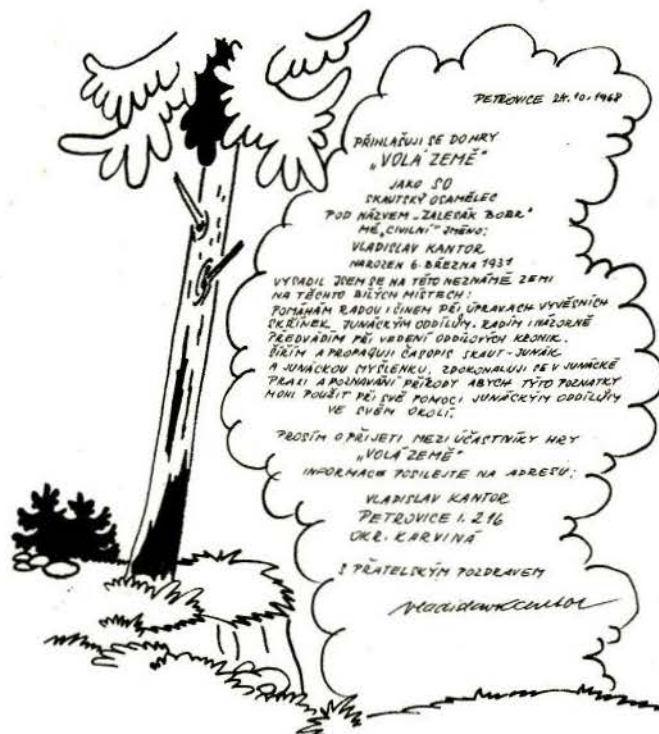 PETROVICE 24.10.1968
PŘIHLAŠUJI SE DO HRY
„VOLÁ ZEMĚ"
JAKO SO
SKAUTSKÝ OSAMĚLEC
POD NÁZVEM „ZÁLESÁK BOBR"
MÉ „CIVILNÍ" JMÉNO:
VLADISLAV KANTOR
NAROZEN 6. BŘEZNA 1931
VYSADIL JSEM SE NA TÉTO NEZNÁMÉ ZEMI
NA TĚCHTO BÍLÝCH MÍSTECH:
POMÁHÁM RADOU I ČINEM PŘI ÚPRAVÁCH VÝVĚSNÍCH
SKŘÍNEK JUNÁCKÝM ODDÍLŮM. RADÍM I NÁZORNĚ
PŘEDVÁDÍM PŘI VEDENÍ ODDÍLOVÝCH KRONIK.
ŠÍŘÍM A PROPAGUJI ČASOPIS SKAUT-JUNÁK
A JUNÁCKOU MYŠLENKU. ZDOKONALUJI SE V JUNÁCKÉ
PRAXI A POZNÁVÁNÍ PŘÍRODY ABYCH TYTO POZNATKY
MOHL POUŽÍT PŘI SVÉ POMOCI JUNÁCKÝM ODDÍLŮM
VE SVÉM OKOLÍ.
PROSÍM O PŘIJETÍ MEZI ÚČASTNÍKY HRY
„VOLÁ ZEMĚ"
INFORMACE POSÍLEJTE NA ADRESU:
VLADISLAV KANTOR
PETROVICE I. 216
OKR. KARVINÁ
S PŘÁTELSKÝM POZDRAVEM
Vladislav Kantor